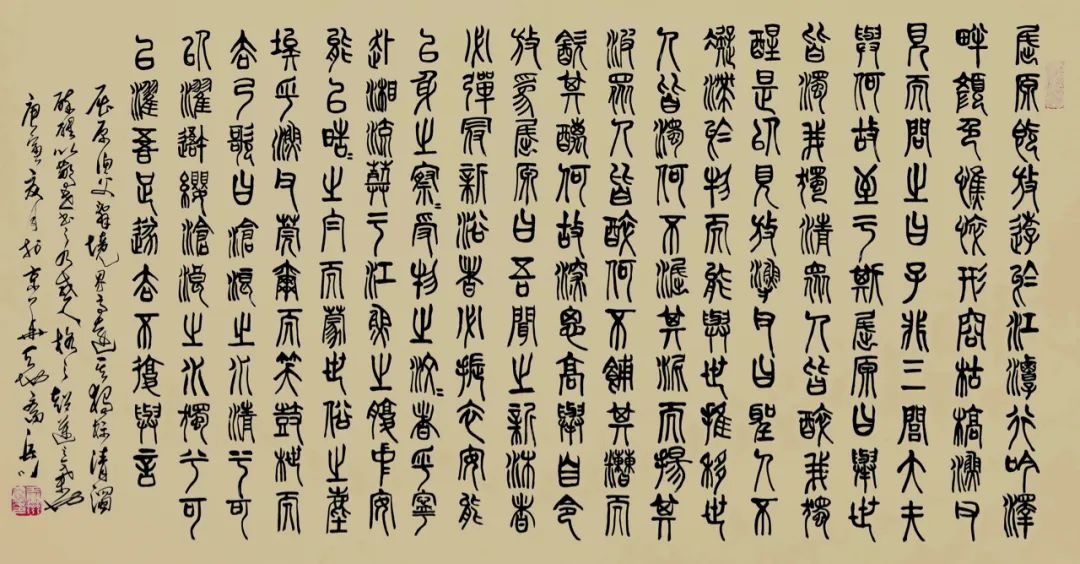 屈原既放遊於江潭行吟澤
畔顏色憔悴形容枯槁漁父
見而問之曰子非三閭大夫
與何故至于斯屈原曰舉世
皆濁我獨清眾人皆醉我獨
醒是以見放漁父曰聖人不
凝滯於物而能與世推移世
人皆濁何不淈其泥而揚其
波眾人皆醉何不餔其糟而
歠其醨何故深思高舉自令
放為屈原曰吾聞之新沐者
必彈冠新浴者必振衣安能
以身之察〻受物之汶〻者乎寧
赴湘流葬于江魚之腹中安
能以皓〻之白而蒙世俗之塵
埃乎漁父莞爾而笑鼓枻而
去乃歌曰滄浪之水清兮可
以濯吾纓滄浪之水濁兮可
以濯吾足遂去不復與言
屈原漁父辭境界高遠其獨清濁
醉醒以
庚寅夏月於京華天地齋